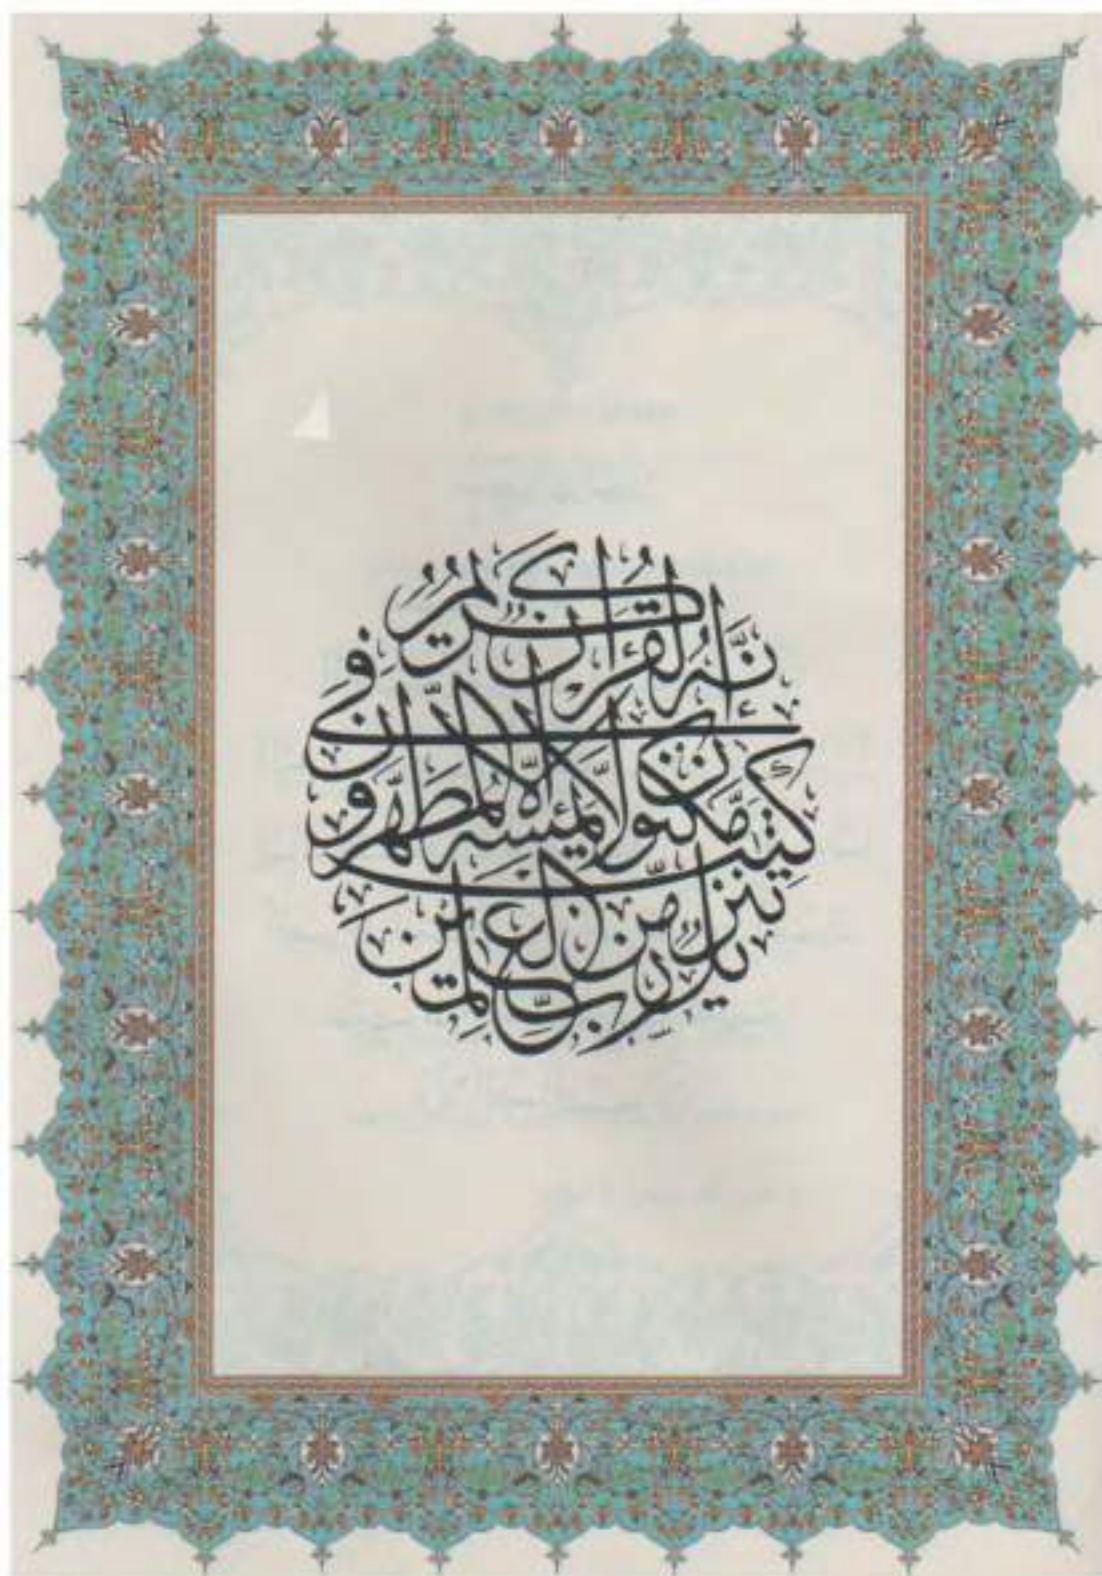 إِنَّهُ لَقُرْآنٌ كَرِيمٌ
فِي كِتَٰبٍ مَّكْنُونٍ
لَّا يَمَسُّهُ إِلَّا الْمُطَهَّرُونَ
تَنزِيلٌ مِّن رَّبِّ الْعَٰلَمِينَ